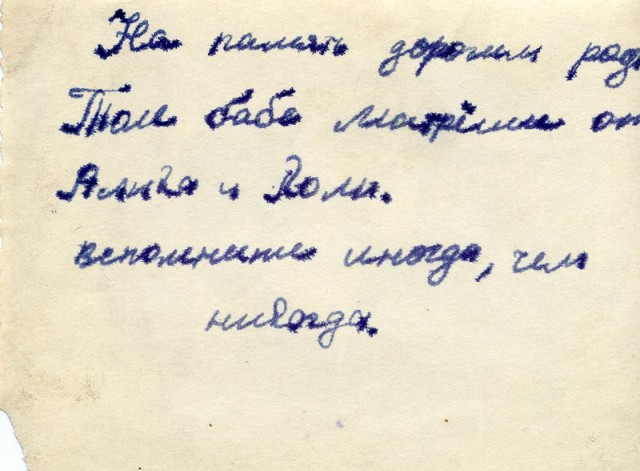 На память дорогим род
Толе бабе Матрёши от
Алика и Коли.
вспомните иногда, чем
никогда.